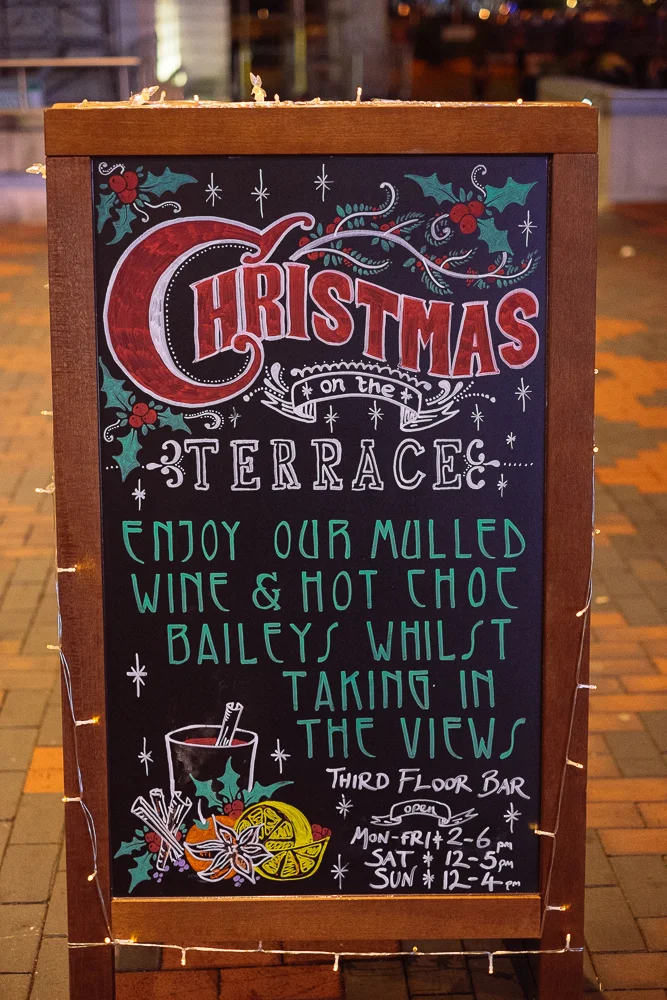 CHRISTMAS
on the
TERRACE
ENJOY OUR MULLED
WINE & HOT CHOC
BAILEYS WHILST
TAKING IN
THE VIEWS
THIRD FLOOR BAR
open
MON-FRI * 2-6 pm
SAT * 12-5 pm
SUN * 12-4 pm